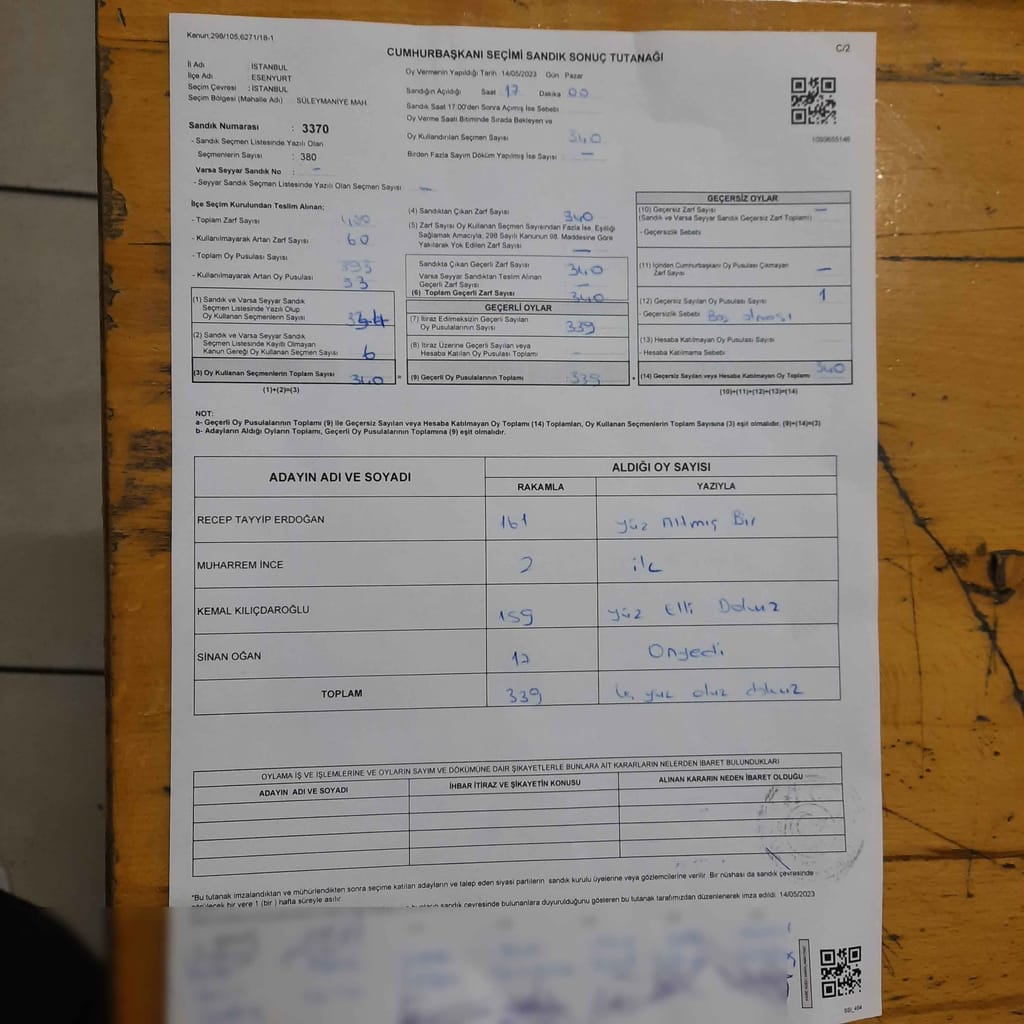 Kanun:298/105,6271/18-1
C/2
CUMHURBAŞKANI SEÇİMİ SANDIK SONUÇ TUTANAĞI
İl Adı : İSTANBUL
İlçe Adı : ESENYURT
Seçim Çevresi : İSTANBUL
Seçim Bölgesi (Mahalle Adı) SÜLEYMANİYE MAH.
Sandık Numarası : 3370
- Sandık Seçmen Listesinde Yazılı Olan
Seçmenlerin Sayısı : 380
Varsa Seyyar Sandık No : -
- Seyyar Sandık Seçmen Listesinde Yazılı Olan Seçmen Sayısı : -
Oy Vermenin Yapıldığı Tarih 14/05/2023 Gün Pazar
Sandığın Açıldığı Saat 17 Dakika 00
Sandık Saat 17:00'den Sonra Açılmış İse Sebebi
Oy Verme Saati Bitiminde Sırada Bekleyen ve
Oy Kullandırılan Seçmen Sayısı 340
Birden Fazla Sayım Döküm Yapılmış İse Sayısı -
1093655146
İlçe Seçim Kurulundan Teslim Alınan;
- Toplam Zarf Sayısı 400
- Kullanılmayarak Artan Zarf Sayısı 60
- Toplam Oy Pusulası Sayısı 393
- Kullanılmayarak Artan Oy Pusulası 53
(1) Sandık ve Varsa Seyyar Sandık
Seçmen Listesinde Yazılı Olup
Oy Kullanan Seçmenlerin Sayısı
(2) Sandık ve Varsa Seyyar Sandık
Seçmen Listesinde Kayıtlı Olmayan
Kanun Gereği Oy Kullanan Seçmen Sayısı 6
(3) Oy Kullanan Seçmenlerin Toplam Sayısı 340
(1)+(2)=(3)
(4) Sandıktan Çıkan Zarf Sayısı 340
(5) Zarf Sayısı Oy Kullanan Seçmen Sayısından Fazla İse, Eşitliği
Sağlamak Amacıyla, 298 Sayılı Kanunun 98. Maddesine Göre
Yakılarak Yok Edilen Zarf Sayısı -
Sandıkta Çıkan Geçerli Zarf Sayısı 340
Varsa Seyyar Sandıktan Teslim Alınan
Geçerli Zarf Sayısı -
(6) Toplam Geçerli Zarf Sayısı 340
GEÇERLİ OYLAR
(7) İtiraz Edilmeksizin Geçerli Sayılan
Oy Pusulalarının Sayısı 339
(8) İtiraz Üzerine Geçerli Sayılan veya
Hesaba Katılan Oy Pusulası Toplamı
= (9) Geçerli Oy Pusulalarının Toplamı 339
GEÇERSİZ OYLAR
(10) Geçersiz Zarf Sayısı -
(Sandık ve Varsa Seyyar Sandık Geçersiz Zarf Toplamı)
- Geçersizlik Sebebi
(11) İçinden Cumhurbaşkanı Oy Pusulası Çıkmayan
Zarf Sayısı -
(12) Geçersiz Sayılan Oy Pusulası Sayısı 1
- Geçersizlik Sebebi Boş olması
(13) Hesaba Katılmayan Oy Pusulası Sayısı
- Hesaba Katılmama Sebebi
+ (14) Geçersiz Sayılan veya Hesaba Katılmayan Oy Toplamı 340
(10)+(11)+(12)+(13)=(14)
NOT:
a- Geçerli Oy Pusulalarının Toplamı (9) ile Geçersiz Sayılan veya Hesaba Katılmayan Oy Toplamı (14) Toplamları, Oy Kullanan Seçmenlerin Toplam Sayısına (3) eşit olmalıdır. (9)+(14)=(3)
b- Adayların Aldığı Oyların Toplamı, Geçerli Oy Pusulalarının Toplamına (9) eşit olmalıdır.
ADAYIN ADI VE SOYADI ALDIĞI OY SAYISI
RAKAMLA YAZIYLA
RECEP TAYYİP ERDOĞAN 161 Yüz Altmış Bir
MUHARREM İNCE 2 iki
KEMAL KILIÇDAROĞLU 159 Yüz Elli Dokuz
SİNAN OĞAN 17 Onyedi
TOPLAM 339 yüz otuz dokuz
OYLAMA İŞ VE İŞLEMLERİNE VE OYLARIN SAYIM VE DÖKÜMÜNE DAİR ŞİKAYETLERLE BUNLARA AİT KARARLARIN NELERDEN İBARET BULUNDUKLARI
ADAYIN ADI VE SOYADI İHBAR İTİRAZ VE ŞİKAYETİN KONUSU ALINAN KARARIN NEDEN İBARET OLDUĞU
"Bu tutanak imzalandıktan ve mühürlendikten sonra seçime katılan adayların ve talep eden siyasi partilerin sandık kurulu üyelerine veya gözlemcilerine verilir. Bir nüshası da sandık çevresinde
görülecek bir yere 1 (bir) hafta süreyle asılır.
sandık çevresinde bulunanlara duyurulduğunu gösteren bu tutanak tarafımızdan düzenlenerek imza edildi. 14/05/2023